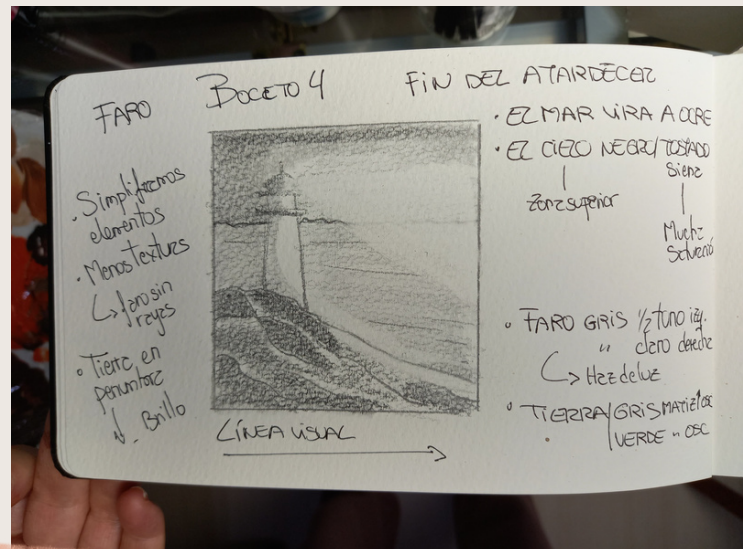 FARO
BOCETO 4
FIN DEL ATARDECER
· Simplificamos
elementos
· Menos texturas
↳ faro sin
rayas
· Tierra en
penumbra
↓ - Brillo
LÍNEA VISUAL
· EL MAR VIRA A OCRE
· EL CIELO NEGRO/TOSTADO
Siena
Zona superior
Mucha
Saturació
· FARO GRIS 1/2 tono izq.
" claro derecha
↳ Haz de luz
· TIERRA/GRIS MATIZ OSC
VERDE " OSC